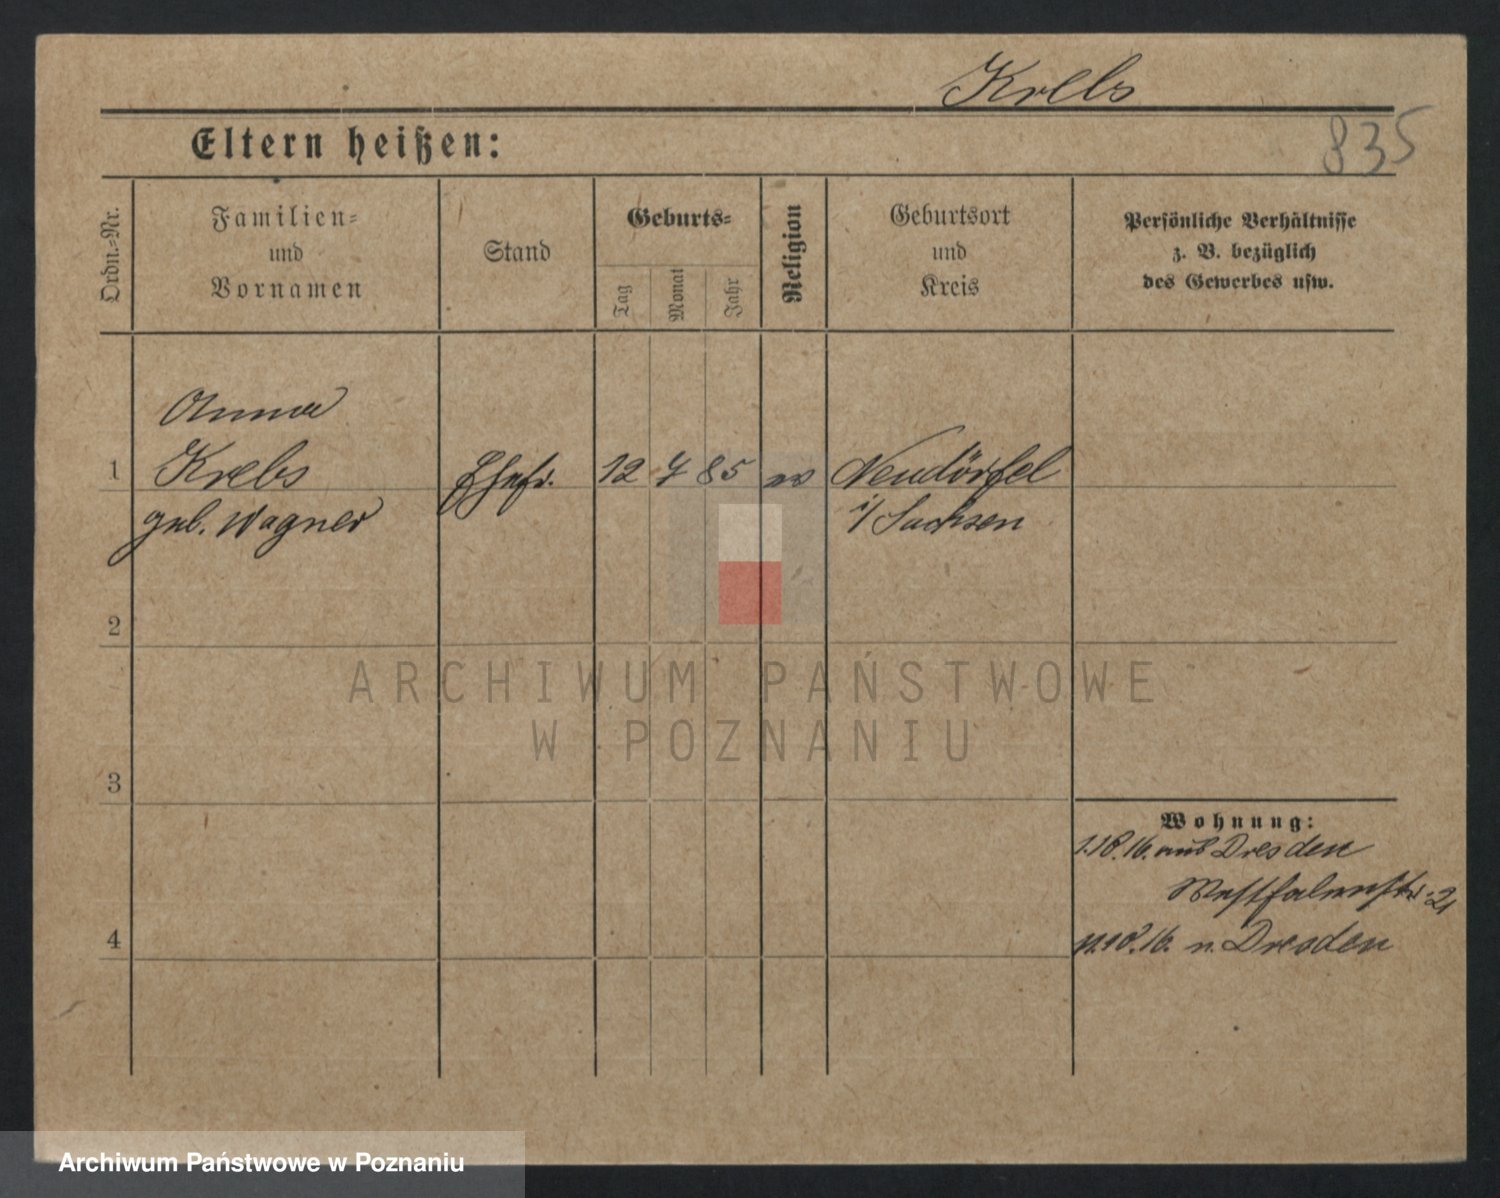 Krebs
835
Eltern heißen:
Ordn.-Nr.
Familien-
und
Vornamen
Stand
Geburts-
Tag
Monat
Jahr
Religion
Geburtsort
und
Kreis
Persönliche Verhältnisse
z. B. bezüglich
des Gewerbes usw.
Anna
1 Krebs Ehefr. 12 7 85 ev Neudörfel
geb. Wagner i/Sachsen
2
ARCHIWUM PAŃSTWOWE
W POZNANIU
3
Wohnung:
16. aus Dresden
Westfalenstr. 21
4
16. n. Dresden
Archiwum Państwowe w Poznaniu